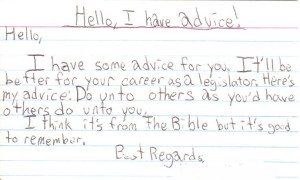 Hello, I have advice!
Hello,
I have some advice for you. It'll be
better for your career as a legislator. Here's
my advice: Do unto others as you'd have
others do unto you.
I think it's from the Bible but it's good
to remember.
Best Regards